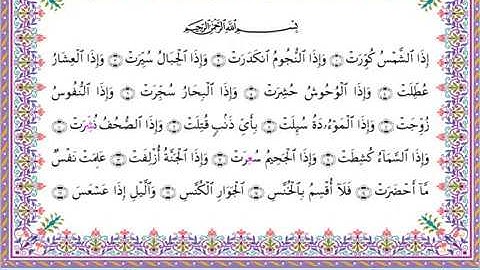 بِسْمِ ٱللَّهِ ٱلرَّحْمَٰنِ ٱلرَّحِيمِ
إِذَا ٱلشَّمْسُ كُوِّرَتْ وَإِذَا ٱلنُّجُومُ ٱنكَدَرَتْ وَإِذَا ٱلْجِبَالُ سُيِّرَتْ وَإِذَا ٱلْعِشَارُ
عُطِّلَتْ وَإِذَا ٱلْوُحُوشُ حُشِرَتْ وَإِذَا ٱلْبِحَارُ سُجِّرَتْ وَإِذَا ٱلنُّفُوسُ
زُوِّجَتْ وَإِذَا ٱلْمَوْءُۥدَةُ سُئِلَتْ بِأَيِّ ذَنۢبٍ قُتِلَتْ وَإِذَا ٱلصُّحُفُ نُشِرَتْ
وَإِذَا ٱلسَّمَآءُ كُشِطَتْ وَإِذَا ٱلْجَحِيمُ سُعِرَتْ وَإِذَا ٱلْجَنَّةُ أُزْلِفَتْ عَلِمَتْ نَفْسٌ
مَّآ أَحْضَرَتْ فَلَآ أُقْسِمُ بِٱلْخُنَّسِ ٱلْجَوَارِ ٱلْكُنَّسِ وَٱلَّيْلِ إِذَا عَسْعَسَ